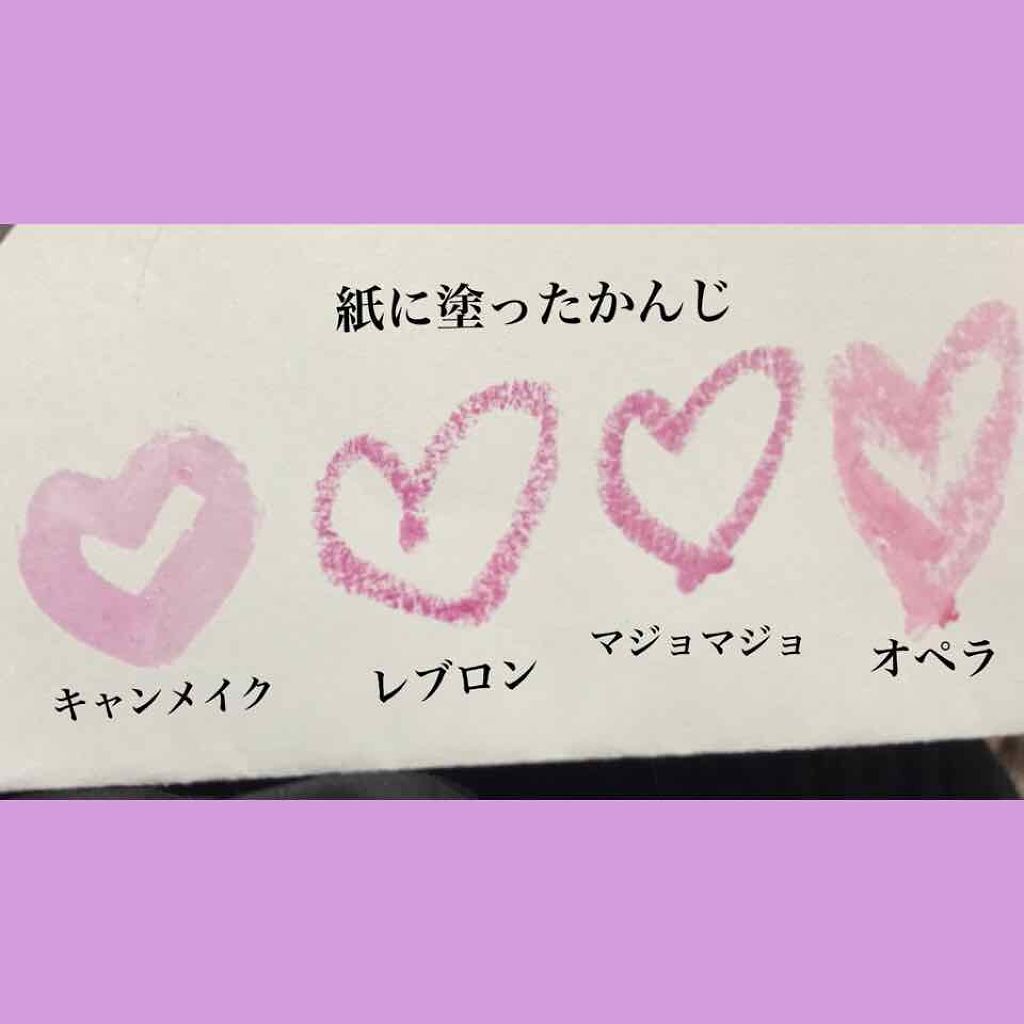 紙に塗ったかんじ
キャンメイク
レブロン
マジョマジョ
オペラ